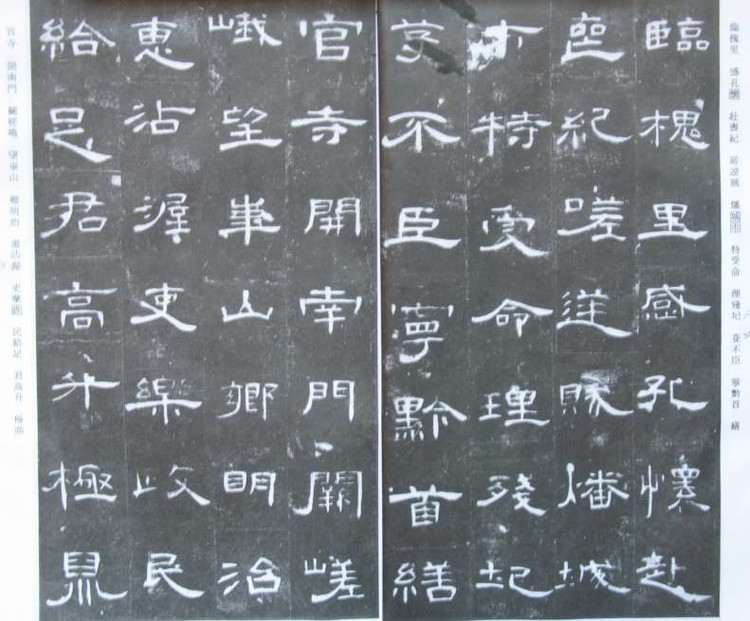 臨槐里 感孔懷 赴喪紀 嗟逆賊 燔城市 特受命 理殘圮 芟不臣 寧黔首 繕
臨槐里感孔懷赴
喪紀嗟逆賊燔城
市特受命理殘圮
芟不臣寧黔首繕
官寺開南門闕嵯
峨望華山鄉明治
惠沾渥吏樂政民
給足君高升極鼎
官寺 開南門 闕嵯峨 望華山 鄉明治 惠沾渥 吏樂政 民給足 君高升 極鼎